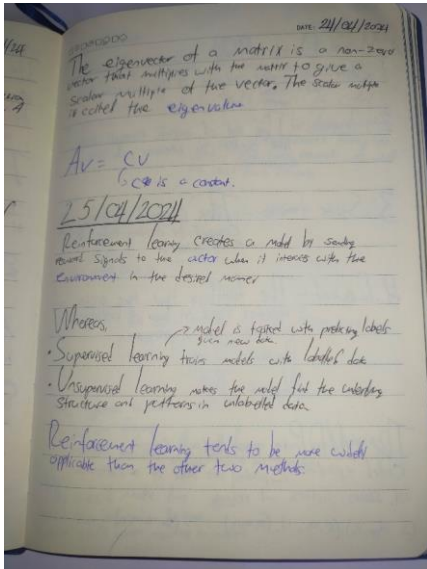 DATE: 24/04/2024
The eigenvector of a matrix is a non-zero
vector that multiplies with the matrix to give a
scalar multiple of the vector. The scalar multiple
is called the eigenvalue
Av = cv
c is a constant.
25/04/2024
Reinforcement learning creates a model by sending
reward signals to the actor when it interacts with the
environment in the desired manner
Whereas,
→ model is tasked with predicting labels
given new data
• Supervised learning trains models with labelled data
• Unsupervised learning makes the model find the underlying
structure and patterns in unlabelled data.
Reinforcement learning tends to be more widely
applicable than the other two methods.